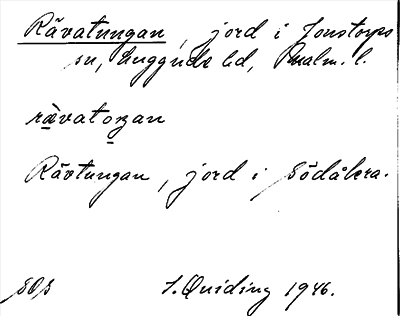 Rävatungan, jord i Jonstorps
sn, Luggude hd, Malm. l.
rävatoŋan
Rävtungan, jord i Södåkra.
S. Quiding 1946.